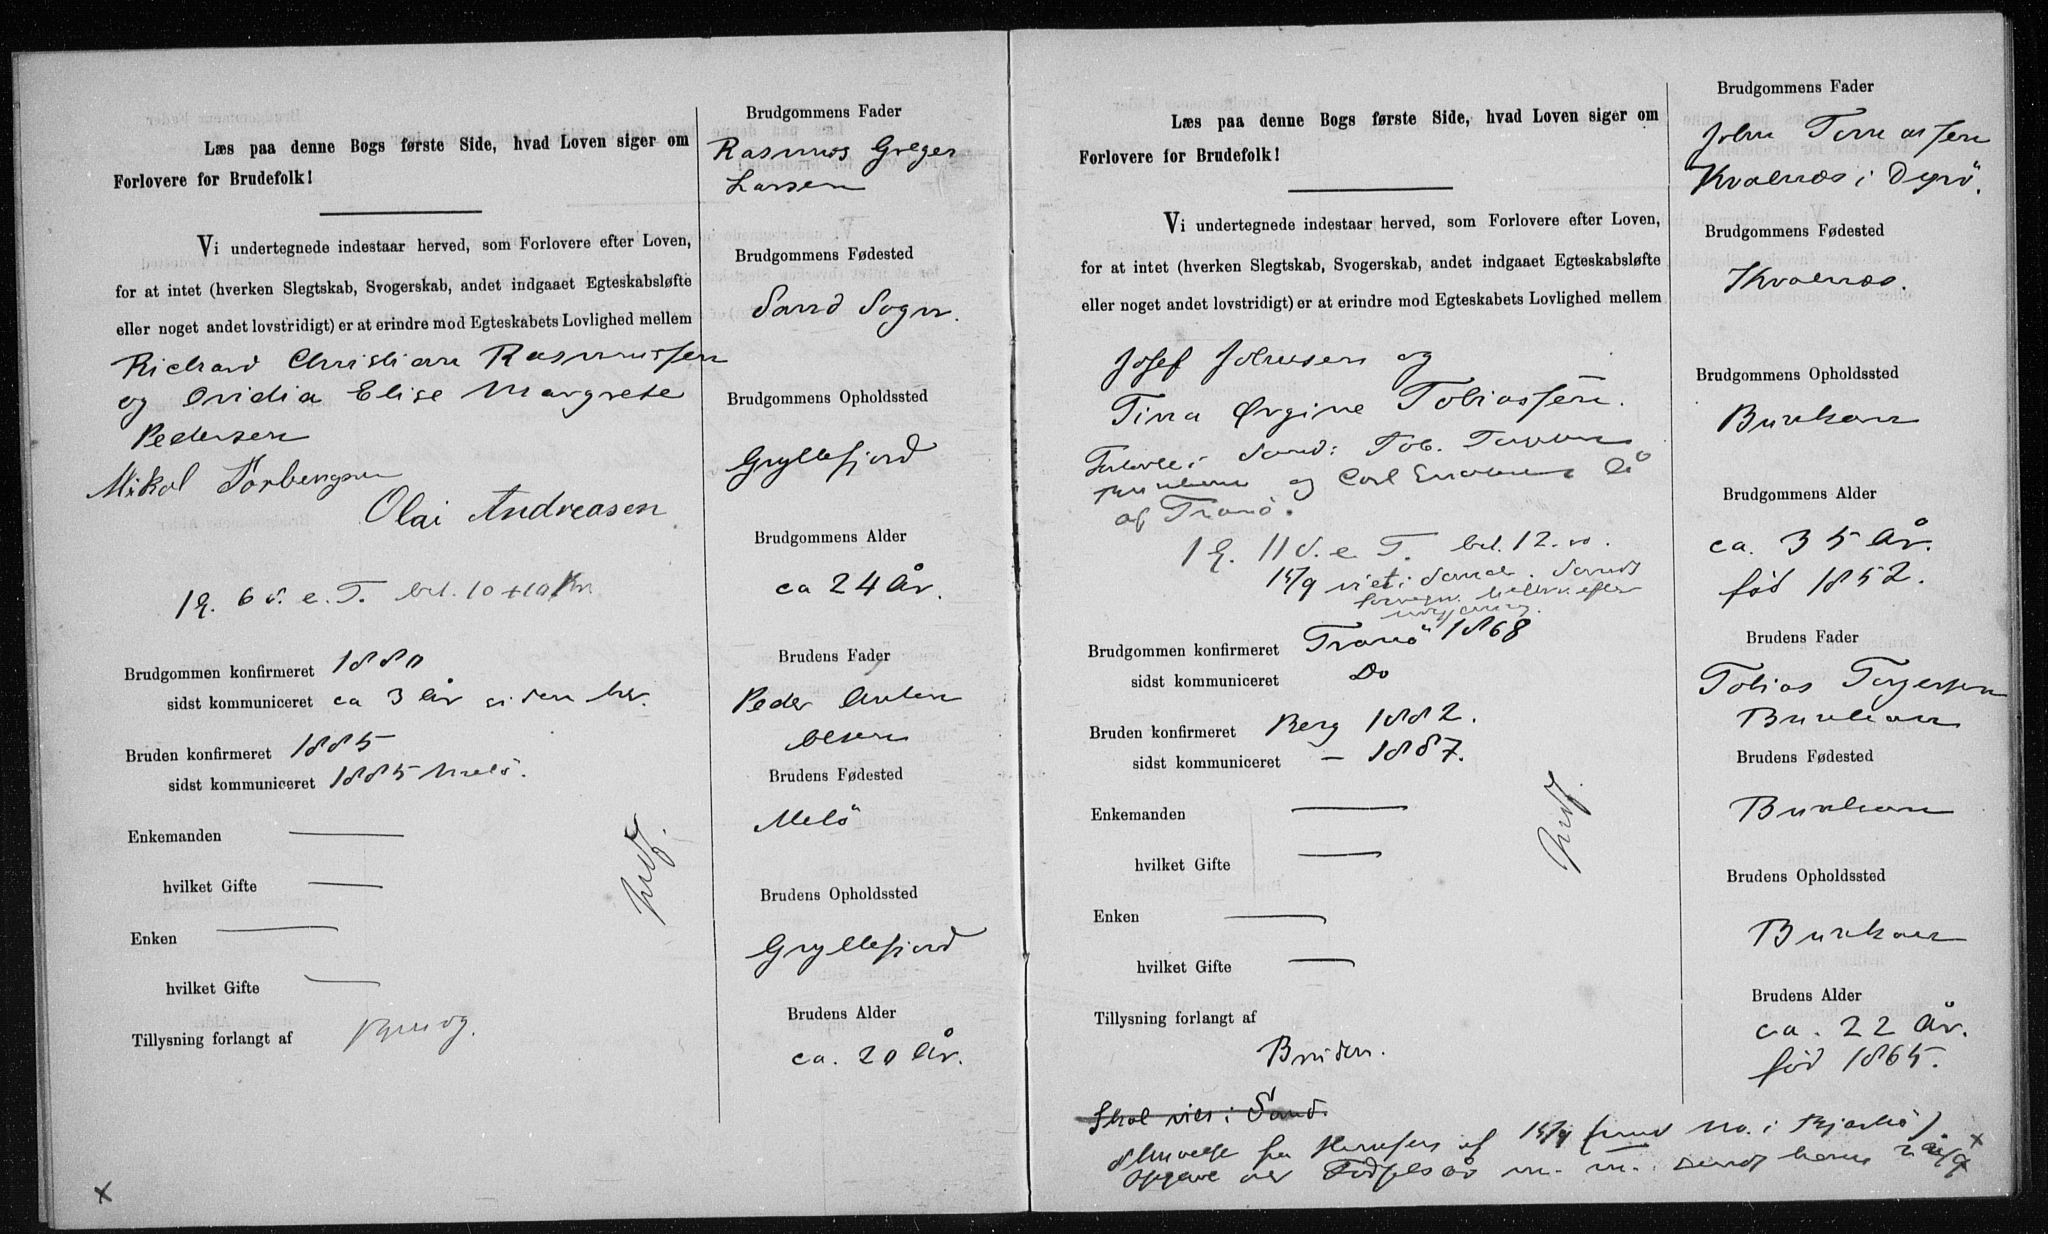 Læs paa denne Bogs første Side, hvad Loven siger om
Forlovere for Brudefolk!
Vi undertegnede indestaar herved, som Forlovere efter Loven,
for at intet (hverken Slegtskab, Svogerskab, andet indgaaet Egteskabsløfte
eller noget andet lovstridigt) er at erindre mod Egteskabets Lovlighed mellem
Richard Christian Rasmussen
og Ovidia Elise Margrete
Pedersen
Mikal Torbengsen
Olai Andreasen
1 g. 6 S. e. T. bet. 10 + 10 Kr
Brudgommen konfirmeret 1880
sidst kommuniceret ca 3 År siden her.
Bruden konfirmeret 1885
sidst kommuniceret 1885 Melö.
Enkemanden
hvilket Gifte
Enken
hvilket Gifte
Tillysning forlangt af
Brudgommens Fader
Rasmus Greger
Larsen
Brudgommens Fødested
Sand Sogn.
Brudgommens Opholdssted
Gryllefjord
Brudgommens Alder
ca 24 År.
Brudens Fader
Peder Anton
Olsen
Brudens Fødested
Melö
Brudens Opholdssted
Gryllefjord
Brudens Alder
ca. 20 År.
x
Læs paa denne Bogs første Side, hvad Loven siger om
Forlovere for Brudefolk!
Vi undertegnede indestaar herved, som Forlovere efter Loven,
for at intet (hverken Slegtskab, Svogerskab, andet indgaaet Egteskabsløfte
eller noget andet lovstridigt) er at erindre mod Egteskabets Lovlighed mellem
Josef Johnsen og
Tina Ørgine Tobiassen.
Sand: Tob.
og Carl
af Tranö.
1 g. 11 S. e. T. bet. 12.00.
15/9 viet i Sand. Sands
efter
Brudgommen konfirmeret Tranö 1868
sidst kommuniceret Do
Bruden konfirmeret Berg 1882.
sidst kommuniceret – 1887.
Enkemanden
hvilket Gifte
Enken
hvilket Gifte
Tillysning forlangt af
Bruden.
Skal vies i Sand.
fra af 15/9 i
Opgave over Födselsår m. m. sendt
Brudgommens Fader
John Tomassen
Kvalnæs i Dyrö.
Brudgommens Fødested
Kvalnæs.
Brudgommens Opholdssted
Bunkan
Brudgommens Alder
ca. 35 År.
föd 1852.
Brudens Fader
Tobias Torgersen
Bunkan
Brudens Fødested
Bunkan
Brudens Opholdssted
Bunkan
Brudens Alder
ca. 22 År.
föd 1865.
x